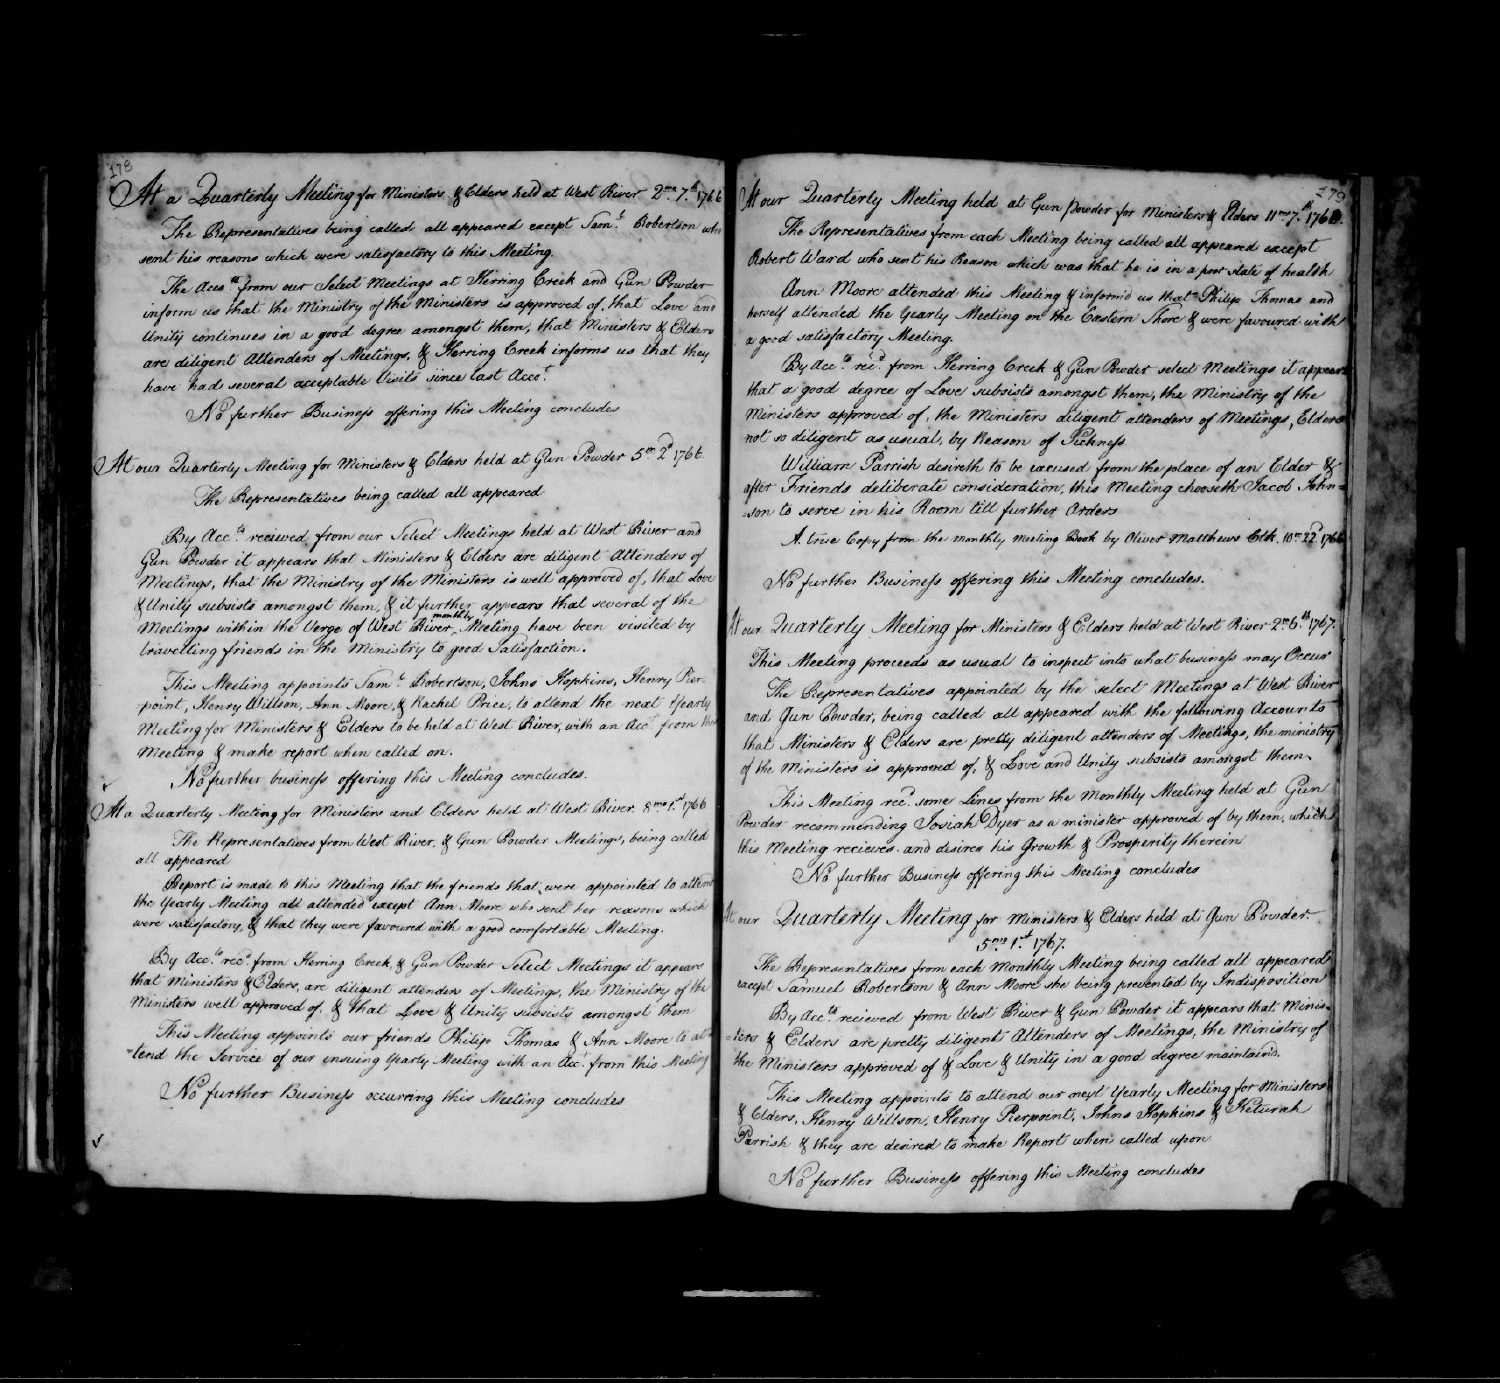 178
At a Quarterly Meeting for Ministers & Elders held at West River 2mo 7th 1766
The Representatives being called all appeared except Saml Robertson who
sent his reasons which were satisfactory to this Meeting.
The Accots from our Select Meetings at Herring Creek and Gun Powder
inform us that the Ministry of the Ministers is approved of, that Love and
Unity continues in a good degree amongst them, that Ministers & Elders
are diligent Attenders of Meetings, & Herring Creek informs us that they
have had several acceptable Visits since last Acct.
No further Business offering this Meeting concludes
At our Quarterly Meeting for Ministers & Elders held at Gun Powder 5mo 2d 1766.
The Representatives being called all appeared
By Accts recieved from our Select Meetings held at West River and
Gun Powder it appears that Ministers & Elders are diligent Attenders of
Meetings, that the Ministry of the Ministers is well approved of, that Love
& Unity subsists amongst them, & it further appears that several of the
Meetings within the Verge of West River monthly Meeting have been visited by
travelling friends in the Ministry to good Satisfaction.
This Meeting appoints Saml Robertson, Johns Hopkins, Henry Pier-
point, Henry Willson, Ann Moore, & Rachel Price, to attend the next Yearly
Meeting for Ministers & Elders to be held at West River, with an Acct from this
Meeting & make report when called on.
No further business offering this Meeting concludes.
At a Quarterly Meeting for Ministers and Elders held at West River 8mo 1st 1766
The Representatives from West River, & Gun Powder Meetings, being called
all appeared
Report is made to this Meeting that the friends that were appointed to attend
the Yearly Meeting all attended except Ann Moore who sent her reasons which
were satisfactory, & that they were favoured with a good comfortable Meeting.
By Accts recd from Herring Creek, & Gun Powder Select Meetings it appears
that Ministers & Elders, are diligent attenders of Meetings, the Ministry of the
Ministers well approved of, & that Love & Unity subsists amongst them
This Meeting appoints our friends Philip Thomas & Ann Moore to at-
=tend the Service of our ensuing Yearly Meeting with an Acct. from this Meeting
No further Business occurring this Meeting concludes
179
At our Quarterly Meeting held at Gun Powder for Ministers & Elders 11mo 7th 176
The Representatives from each Meeting being called all appeared except
Robert Ward who sent his Reason which was that he is in a poor state of health
Ann Moore attended this Meeting & inform'd us that Philip Thomas and
herself attended the Yearly Meeting on the Eastern Shore & were favoured with
a good satisfactory Meeting.
By Accts recd from Herring Creek & Gun Powder select Meetings it appears
that a good degree of Love subsists amongst them, the Ministry of the
Ministers approved of, the Ministers diligent attenders of Meetings, Elders
not so diligent as usual, by Reason of Sickness
William Parrish desireth to be excused from the place of an Elder &
after Friends deliberate consideration, this Meeting chooseth Jacob John=
=son to serve in his Room till further Orders
A true Copy from the monthly meeting Book by Oliver Matthews Clk. 10mo 22d 1766
No further Business offering this Meeting concludes.
At our Quarterly Meeting for Ministers & Elders held at West River 2mo 6th 1767.
This Meeting proceeds as usual to inspect into what business may Occur
The Representatives appointed by the select Meetings at West River
and Gun Powder, being called all appeared with the following Accounts
that Ministers & Elders are pretty diligent attenders of Meetings, the ministry
of the Ministers is approved of, & Love and Unity subsists amongst them.
This Meeting recd some Lines from the Monthly Meeting held at Gun
Powder recommending Josiah Dyer as a minister approved of by them, which
this Meeting recieves and desires his Growth & Prosperity therein
No further Business offering this Meeting concludes
At our Quarterly Meeting for Ministers & Elders held at Gun Powder.
5mo 1st 1767.
The Representatives from each Monthly Meeting being called all appeared
except Samuel Robertson & Ann Moore she being prevented by Indisposition
By Accts recieved from West River & Gun Powder it appears that Minis=
=ters & Elders are pretty diligent Attenders of Meetings, the Ministry of
the Ministers approved of & Love & Unity in a good degree maintain'd.
This Meeting appoints to attend our next Yearly Meeting for Ministers
& Elders, Henry Willson, Henry Pierpoint, Johns Hopkins & Keturah
Parrish & they are desired to make Report when called upon
No further Business offering this Meeting concludes